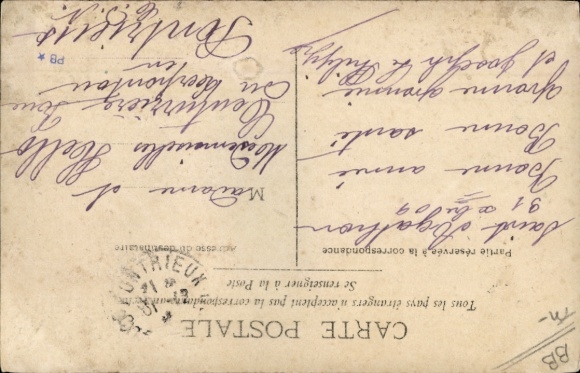 CARTE POSTALE
Tous les pays étrangers n'acceptent pas la correspondance
Se renseigner à la Poste
Partie réservée à la correspondance
Adresse du destinataire
PONTRIEUX
Saint Agathon
31 xbre 09
Bonne année
Bonne santé
Yvonne
et Joseph Le Philippe
M adame et
Mesdemoiselles Hello
Couturières Rue
du
en
Pontrieux
C. du N.
PB
BB